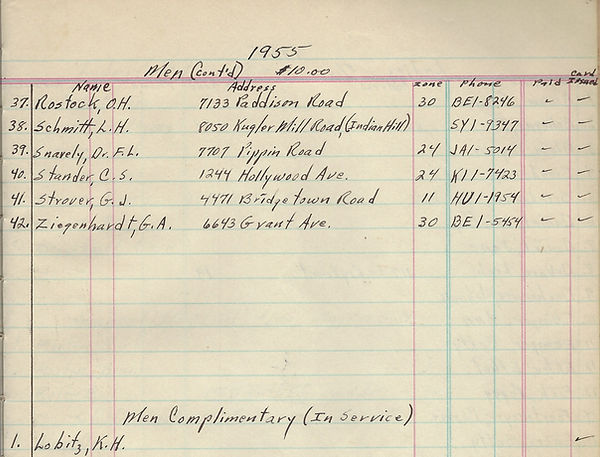 1955
Men (cont'd) $10.00
Name Address Zone Phone Paid Card Issued
37. Rostock, O.H. 7133 Paddison Road 30 BE1-8246 – –
38. Schmitt, L.H. 8050 Kugler Mill Road, (Indian Hill) SY1-9347 – –
39. Snavely, Dr. F.L. 7707 Pippin Road 24 JA1-5014 – –
40. Stander, C.S. 1244 Hollywood Ave. 24 KI1-7423 – –
41. Strover, G.J. 4471 Bridgetown Road 11 HU1-1954 – –
42. Ziegenhardt, G.A. 6643 Grant Ave. 30 BE1-5454 – –
Men Complimentary (In Service)
1. Lobitz, K.H. ✓